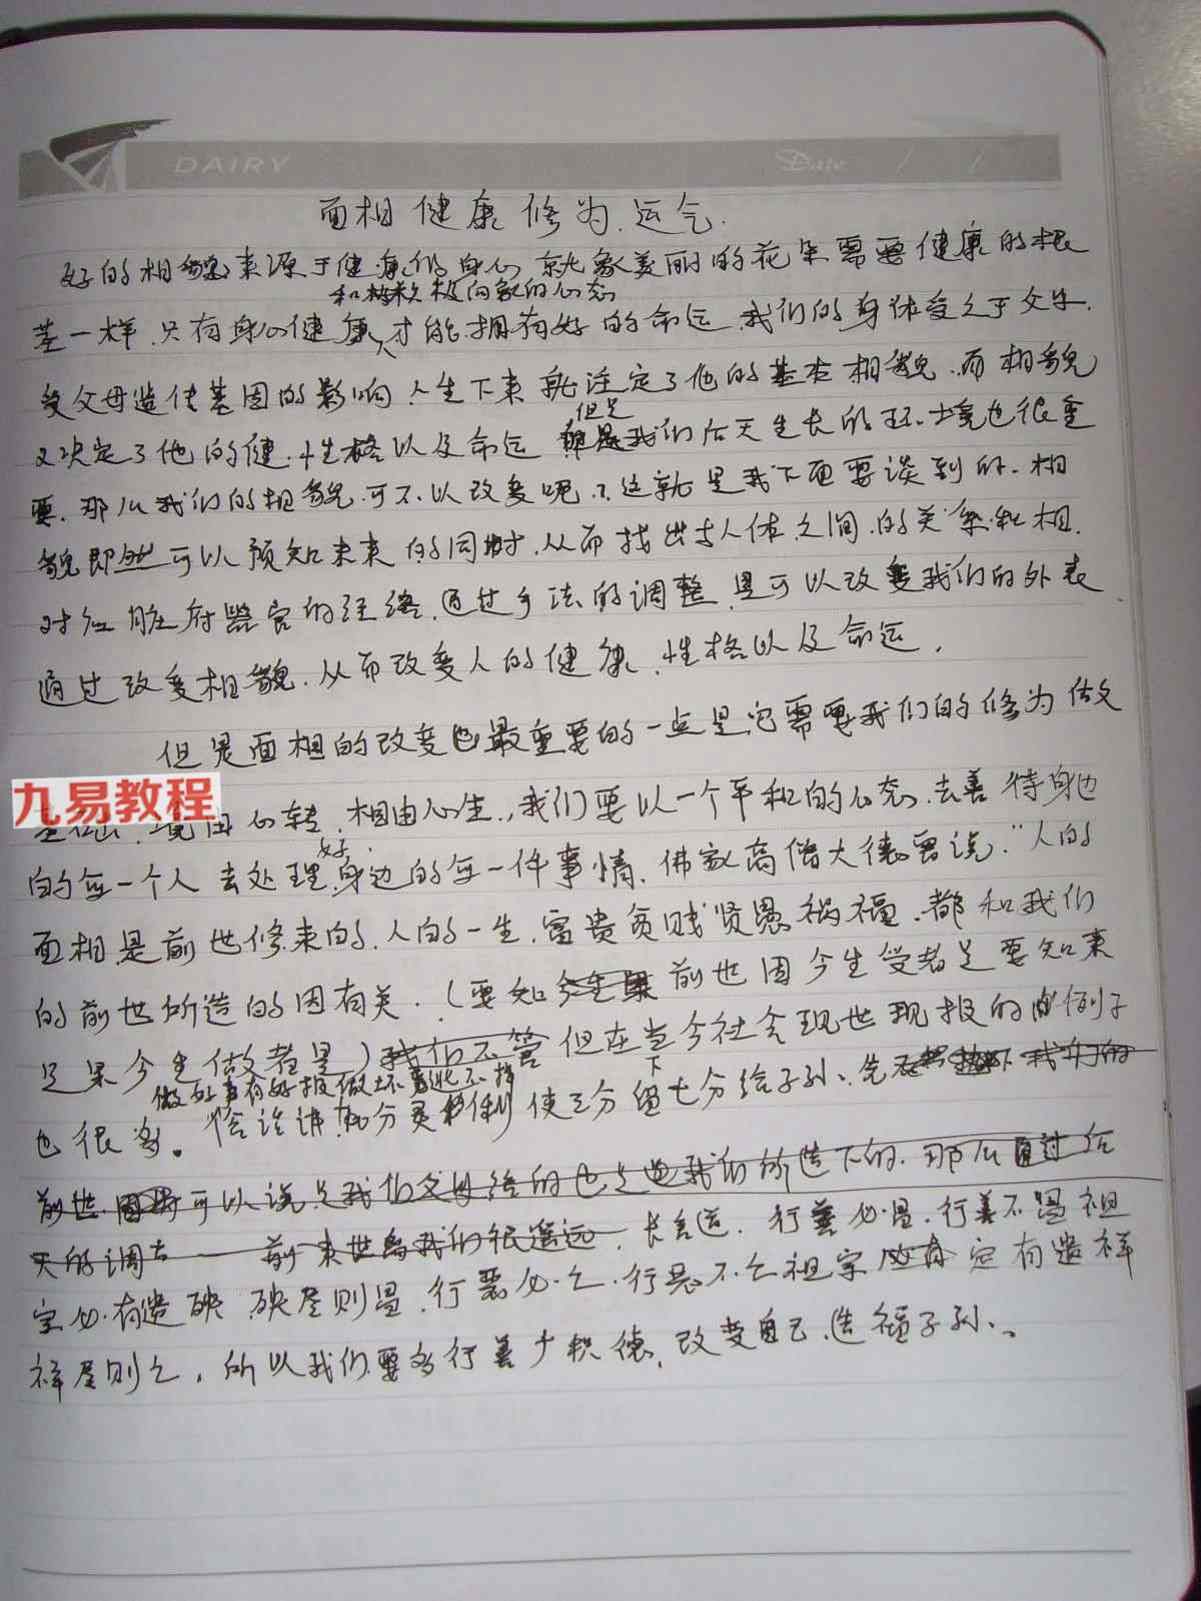 DAIRY Date / /
面相 健康 修为 运气.
好的相貌来源于健康的身心 就象美丽的花朵需要健康的根
和 积极向象的心态
茎一样.只有身心健康才能拥有好的命运.我们的身体受之于父母.
受父母遗传基因的影响 人生下来就注定了他的基本相貌.而相貌
但是
又决定了他的健.性格以及命运 我们后天生长的环境也很重
要.那么我们的相貌可不以改变呢?这就是我下面要谈到的.相
貌即然可以预知未来的同时.从而找出与人体之间的关系和相.
对应脏府器官的经络.通过手法的调整.是可以改变我们的外表
通过改变相貌.从而改变人的健康.性格以及命运.
但是面相的改变也最重要的一点是它需要我们的修为做文
九易教程
境由心转.相由心生.我们要以一个平和的心态.去善待身边
好
的每一个人 去处理身边的每一件事情.佛家高僧大德曾说."人的
面相是前世修来的.人的一生.富贵贫贱贤愚祸福.都和我们
的前世所造的因有关.(要知 前世因今生受者是要知来
足果今生做者是)我们不管 但在当今社会现世现报的例子
做好事有好报做坏事
也很多。俗话讲 使三分留七分给子孙.
前世 可以说是我们父母给的也是我们所造下的.那么通过后
天的调 前来世离我们很遥远.长言道.行善必昌.行善不昌祖
宗必有遗殃 殃尽则昌.行恶必亡.行恶不亡祖宗 定有遗祥
祥尽则亡.所以我们要多行善 积德.改变自己.造福子孙.